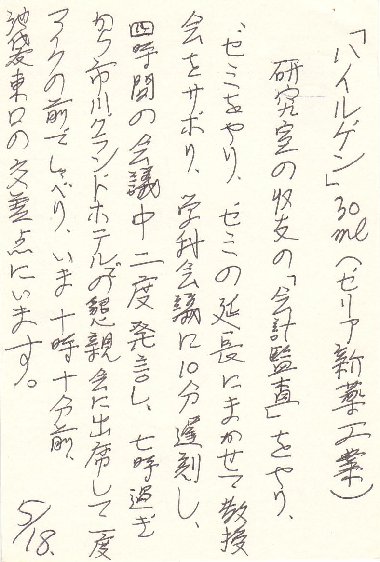 「ハイルゲン」30ml(ゼリア新薬工業)
研究室の収支の「会計監査」をやり、
ゼミをやり、ゼミの延長にまかせて教授
会をサボり、学科会議に10分遅刻し、
四時間の会議中二度発言し、七時過ぎ
から市川グランドホテルの懇親会に出席して一度
マイクの前でしゃべり、いま十時十分前、
池袋東口の交差点にいます。
5/18.